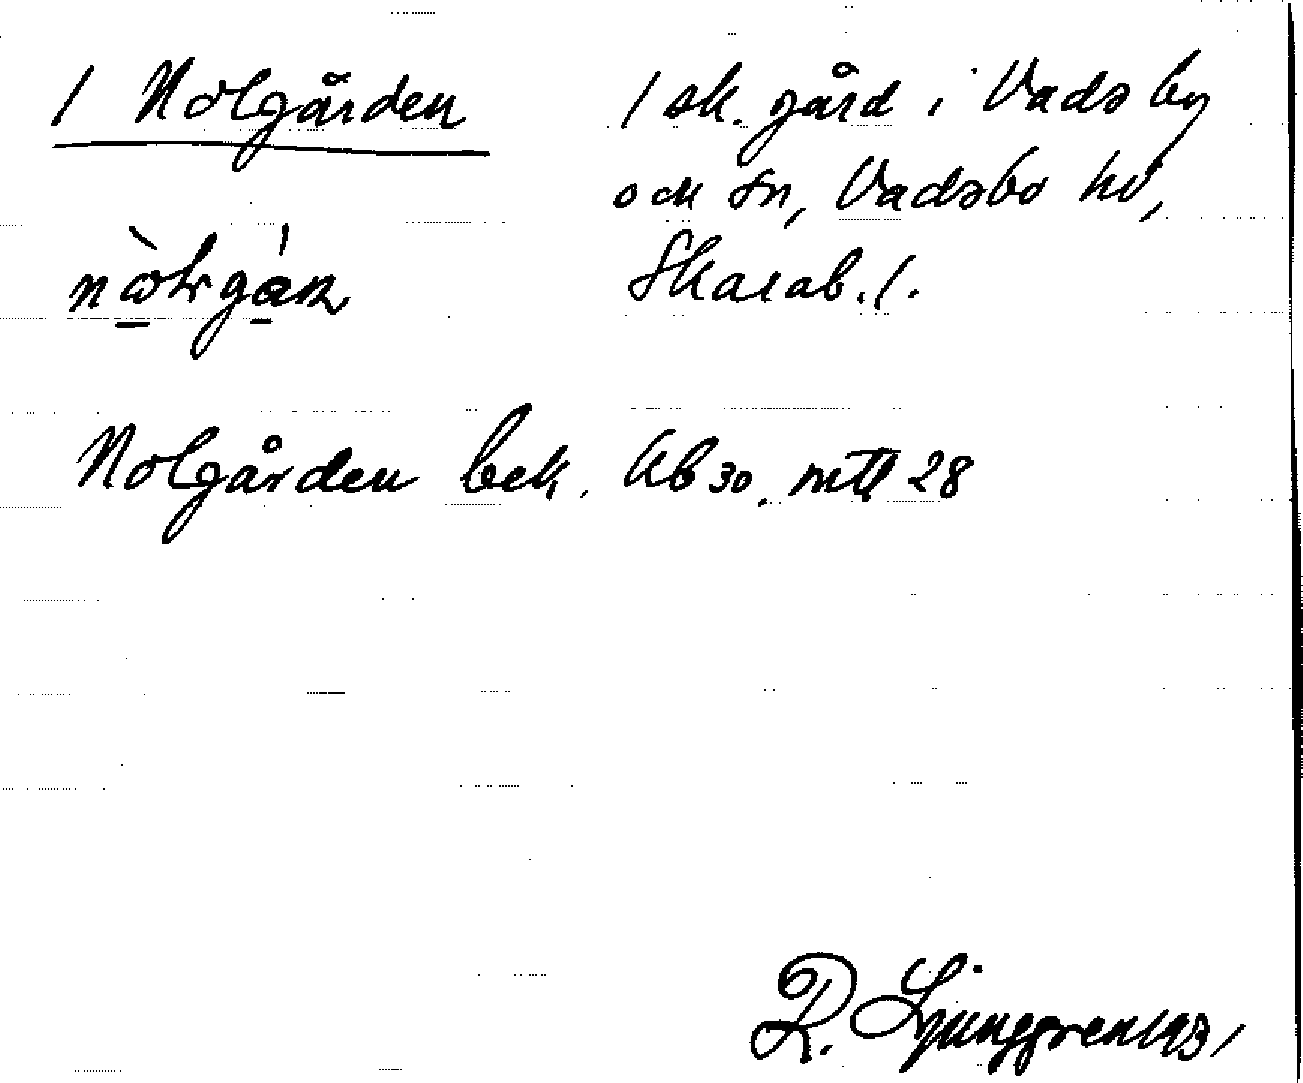 1 Nolgården
1 sk. gård i Vads by
och sn, Vadsbo hd,
Skarab. l.
Nolgården bek. Ab 30. mtl 28
R. Ljunggren 1931